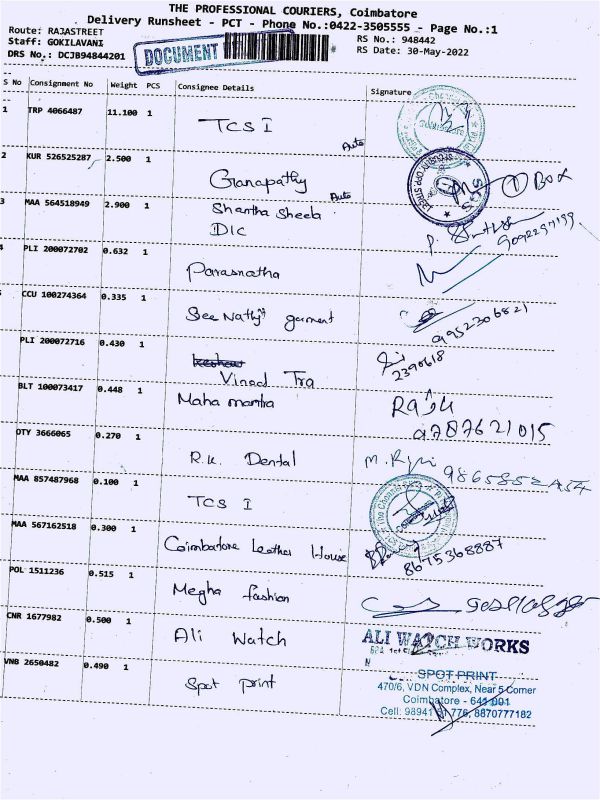 THE PROFESSIONAL COURIERS, Coimbatore
Delivery Runsheet - PCT - Phone No.:0422-3505555 - Page No.:1
Route: RAJASTREET
RS No.: 948442
Staff: GOKILAVANI
RS Date: 30-May-2022
DRS No.: DCJB94844201
DOCUMENT
S No Consignment No Weight PCS Consignee Details Signature
1 TRP 4066487 11.100 1 TCS I
Auto
2 KUR 526525287 2.500 1 Ganapathy
Auto
1 Box
3 MAA 564518949 2.900 1 Shantha Sheela
DLC
9092297199
4 PLI 200072702 0.632 1 Parasnatha
CCU 100274364 0.335 1 See Nathji garment
9952306821
PLI 200072716 0.430 1
Vinod Tra
2390618
BLT 100073417 0.448 1 Maha mantra Raju
9787621015
OTY 3666065 0.270 1 R.K. Dental
MAA 857487968 0.100 1 TCS I
MAA 567162518 0.300 1 Coimbatore Leather House
8675368887
POL 1511236 0.515 1 Megha fashion
CNR 1677982 0.500 1 Ali Watch
ALI WATCH WORKS
VNB 2650482 0.490 1 Spot print
SPOT PRINT
470/6, VDN Complex, Near 5 Corner
Coimbatore - 641 001
Cell: 98941 776, 8870777182